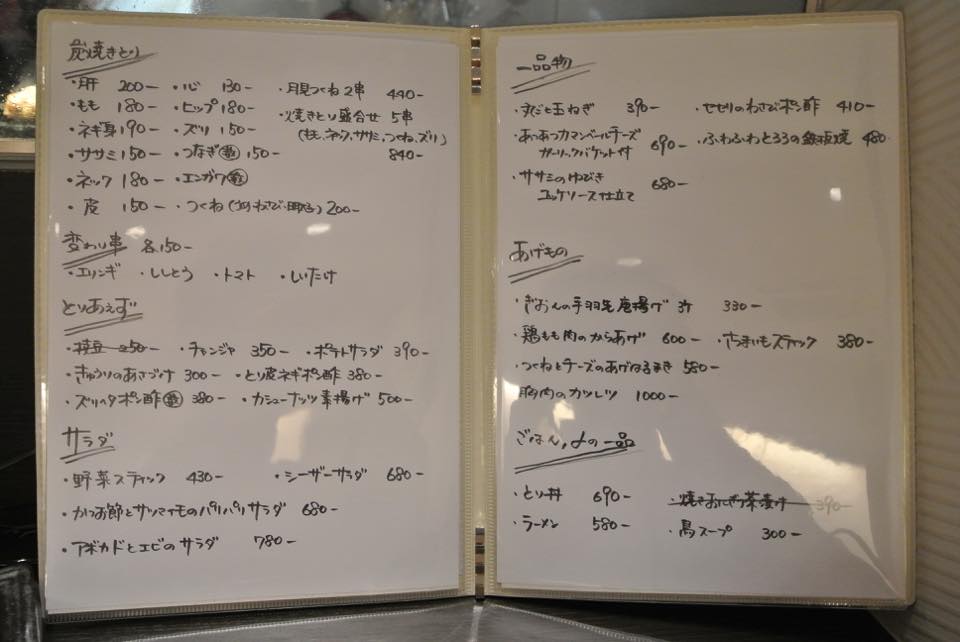 炭焼きとり
・肝 200ー ・心 130ー ・月見つくね2串 440ー
・もも 180ー ・ヒップ 180ー ・焼きとり盛合せ 5串
・ネギ身 190ー ・ズリ 150ー (もも、ネック、ササミ、つくね、ズリ)
・ササミ 150ー ・つなぎ 150ー 840ー
・ネック 180ー ・エンガワ
・皮 150ー ・つくね 200ー
変わり串 各150ー
・エリンギ ・ししとう ・トマト ・しいたけ
とりあえず
・枝豆 250ー ・チャンジャ 350ー ・ポテトサラダ 390ー
・きゅうりのあさづけ 300ー ・とり皮ネギポン酢 380ー
・ズリヘタポン酢 380ー ・カシューナッツ素揚げ 500ー
サラダ
・野菜スティック 430ー ・シーザーサラダ 680ー
・かつお節とサツマイモのパリパリサラダ 680ー
・アボカドとエビのサラダ 780ー
一品物
・丸ごと玉ねぎ 390ー ・せせりのわさびポン酢 410ー
・あつあつカマンベールチーズ
ガーリックバケット付 690ー ・ふわふわとろろの鉄板焼 480
・ササミのゆびき
ユッケソース仕立て 680ー
あげもの
・ぎおんの手羽先唐揚げ 3ケ 330ー
・鶏もも肉のからあげ 600ー ・さつまいもスティック 380ー
・つくねとチーズのあげはるまき 580ー
胸肉のカツレツ 1000ー
ごはん、〆の一品
・とり丼 690ー ・焼きおにぎり茶漬け 390ー
・ラーメン 580ー ・鳥スープ 300ー